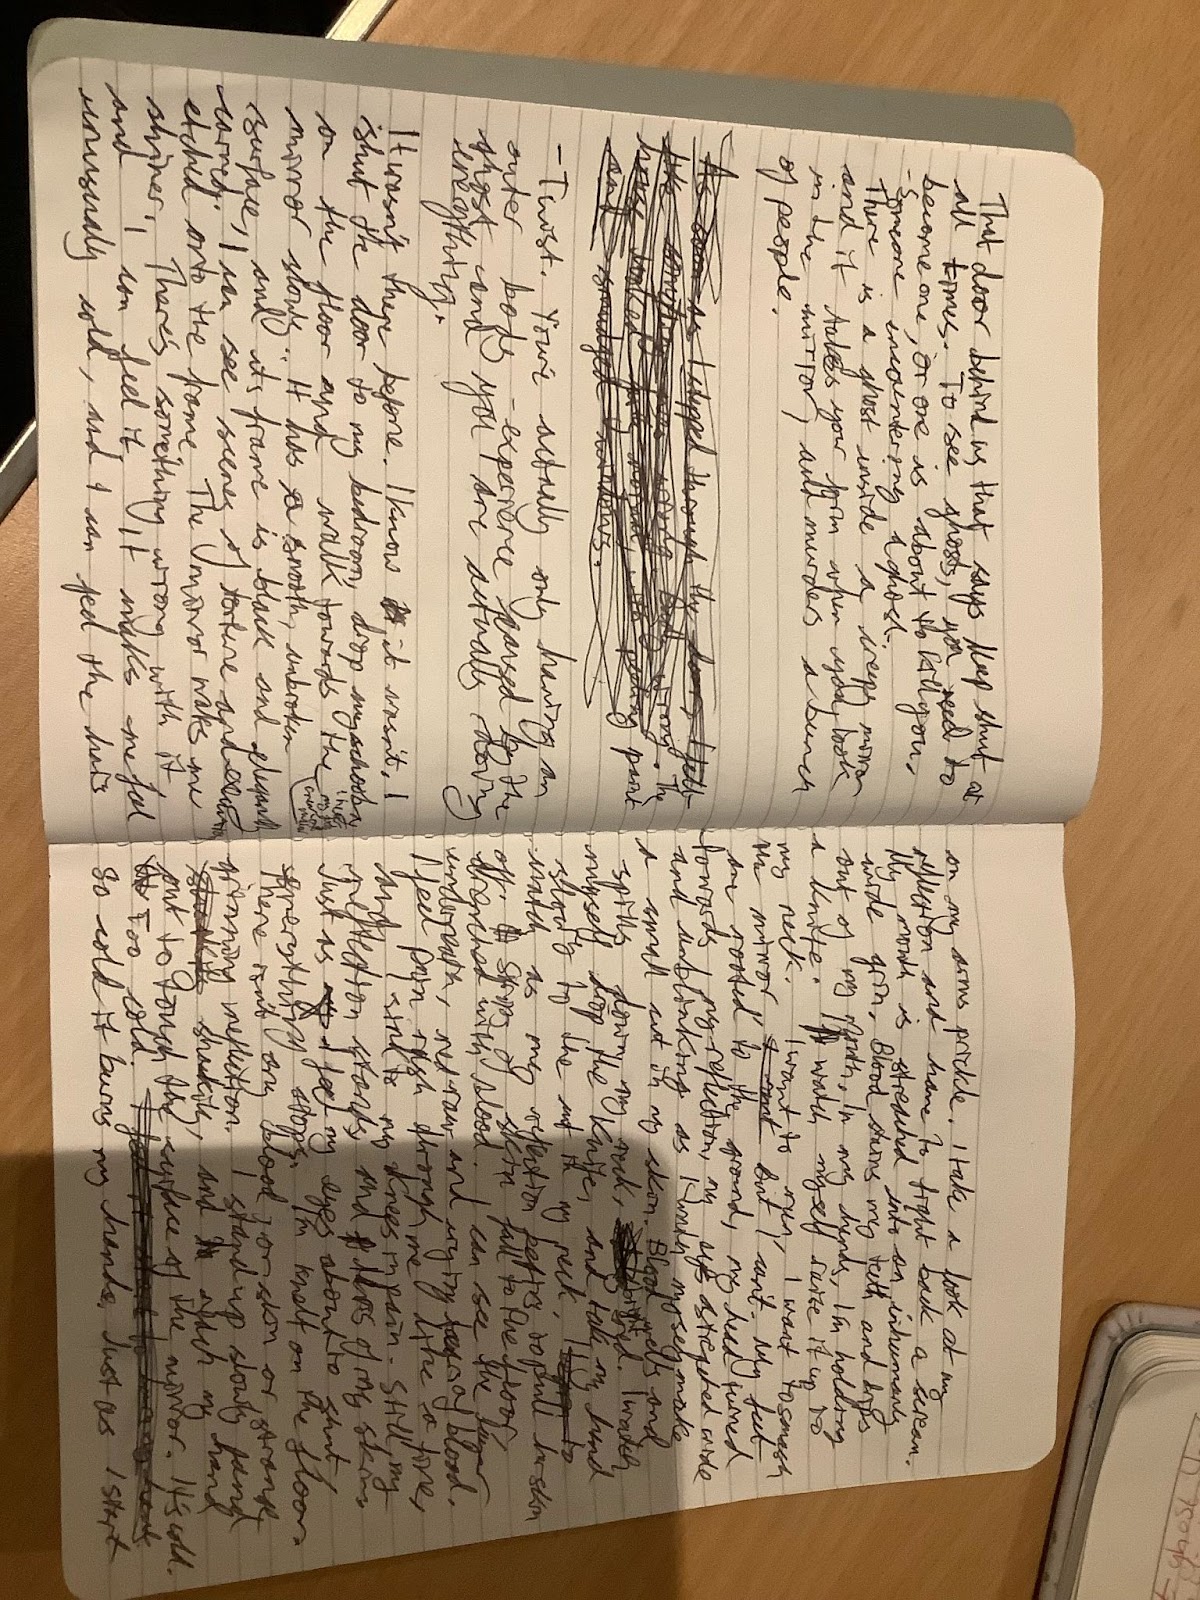 That door behind us that says keep shut at
all times. To see ghosts, you need to
become one, or one is about to kill you.
- Someone encountering a ghost.
There is a ghost inside a creepy mirror
and it takes your form when you look
in the mirror, and murders a bunch
of people.
As soon as I stepped through the door, I felt
like something was wrong. The
house looked
and smudged windows.
- Twist. You're actually only having an
outer body - experience caused by the
ghost and you are actually doing
everything.
It wasn't there before. I know it wasn't. I
shut the door to my bedroom, drop my school
on the floor and walk towards the
mirror slowly. It has a smooth, unbroken
surface, and its frame is black and elegantly
carved. I can see scenes of torture and
etched onto the frame. The mirror makes me
shiver. There's something wrong with it,
and I can feel it, it makes me feel
unusually cold, and I can feel the hairs
on my arms prickle. I take a look at my
reflection and have to fight back a scream.
My mouth is stretched into an inhumanly
wide grin. Blood stains my teeth and drips
out of my mouth. In my hands, I'm holding
a knife. I watch myself raise it up to
my neck. I want to run, I want to smash
the mirror but I can't. My feet
are rooted to the ground, my head turned
towards my reflection, my eyes stretched wide
and unblinking as I watch myself make
a small cut in my skin. Blood wells and
spills down my neck, I watch
myself drop the knife, and take my hand
slowly to the cut in my neck. I
watch as my reflection begins to pull his skin
off. Strips of skin fall to the floor,
drenched with blood. I can see the layer
underneath, red raw and blood.
I feel pain rush through me like a fire,
and sink to my knees in pain. Still, my
reflection stands and of my skin.
Just as I feel my eyes about to shut,
everything stops. I'm knelt on the floor.
There isn't any blood, or skin or strange,
grinning reflection. I stand up slowly, hand
shaking, and my hand
out to touch the surface of the mirror. It's cold.
Too cold.
So cold it burns my hands. Just as I start
ghost